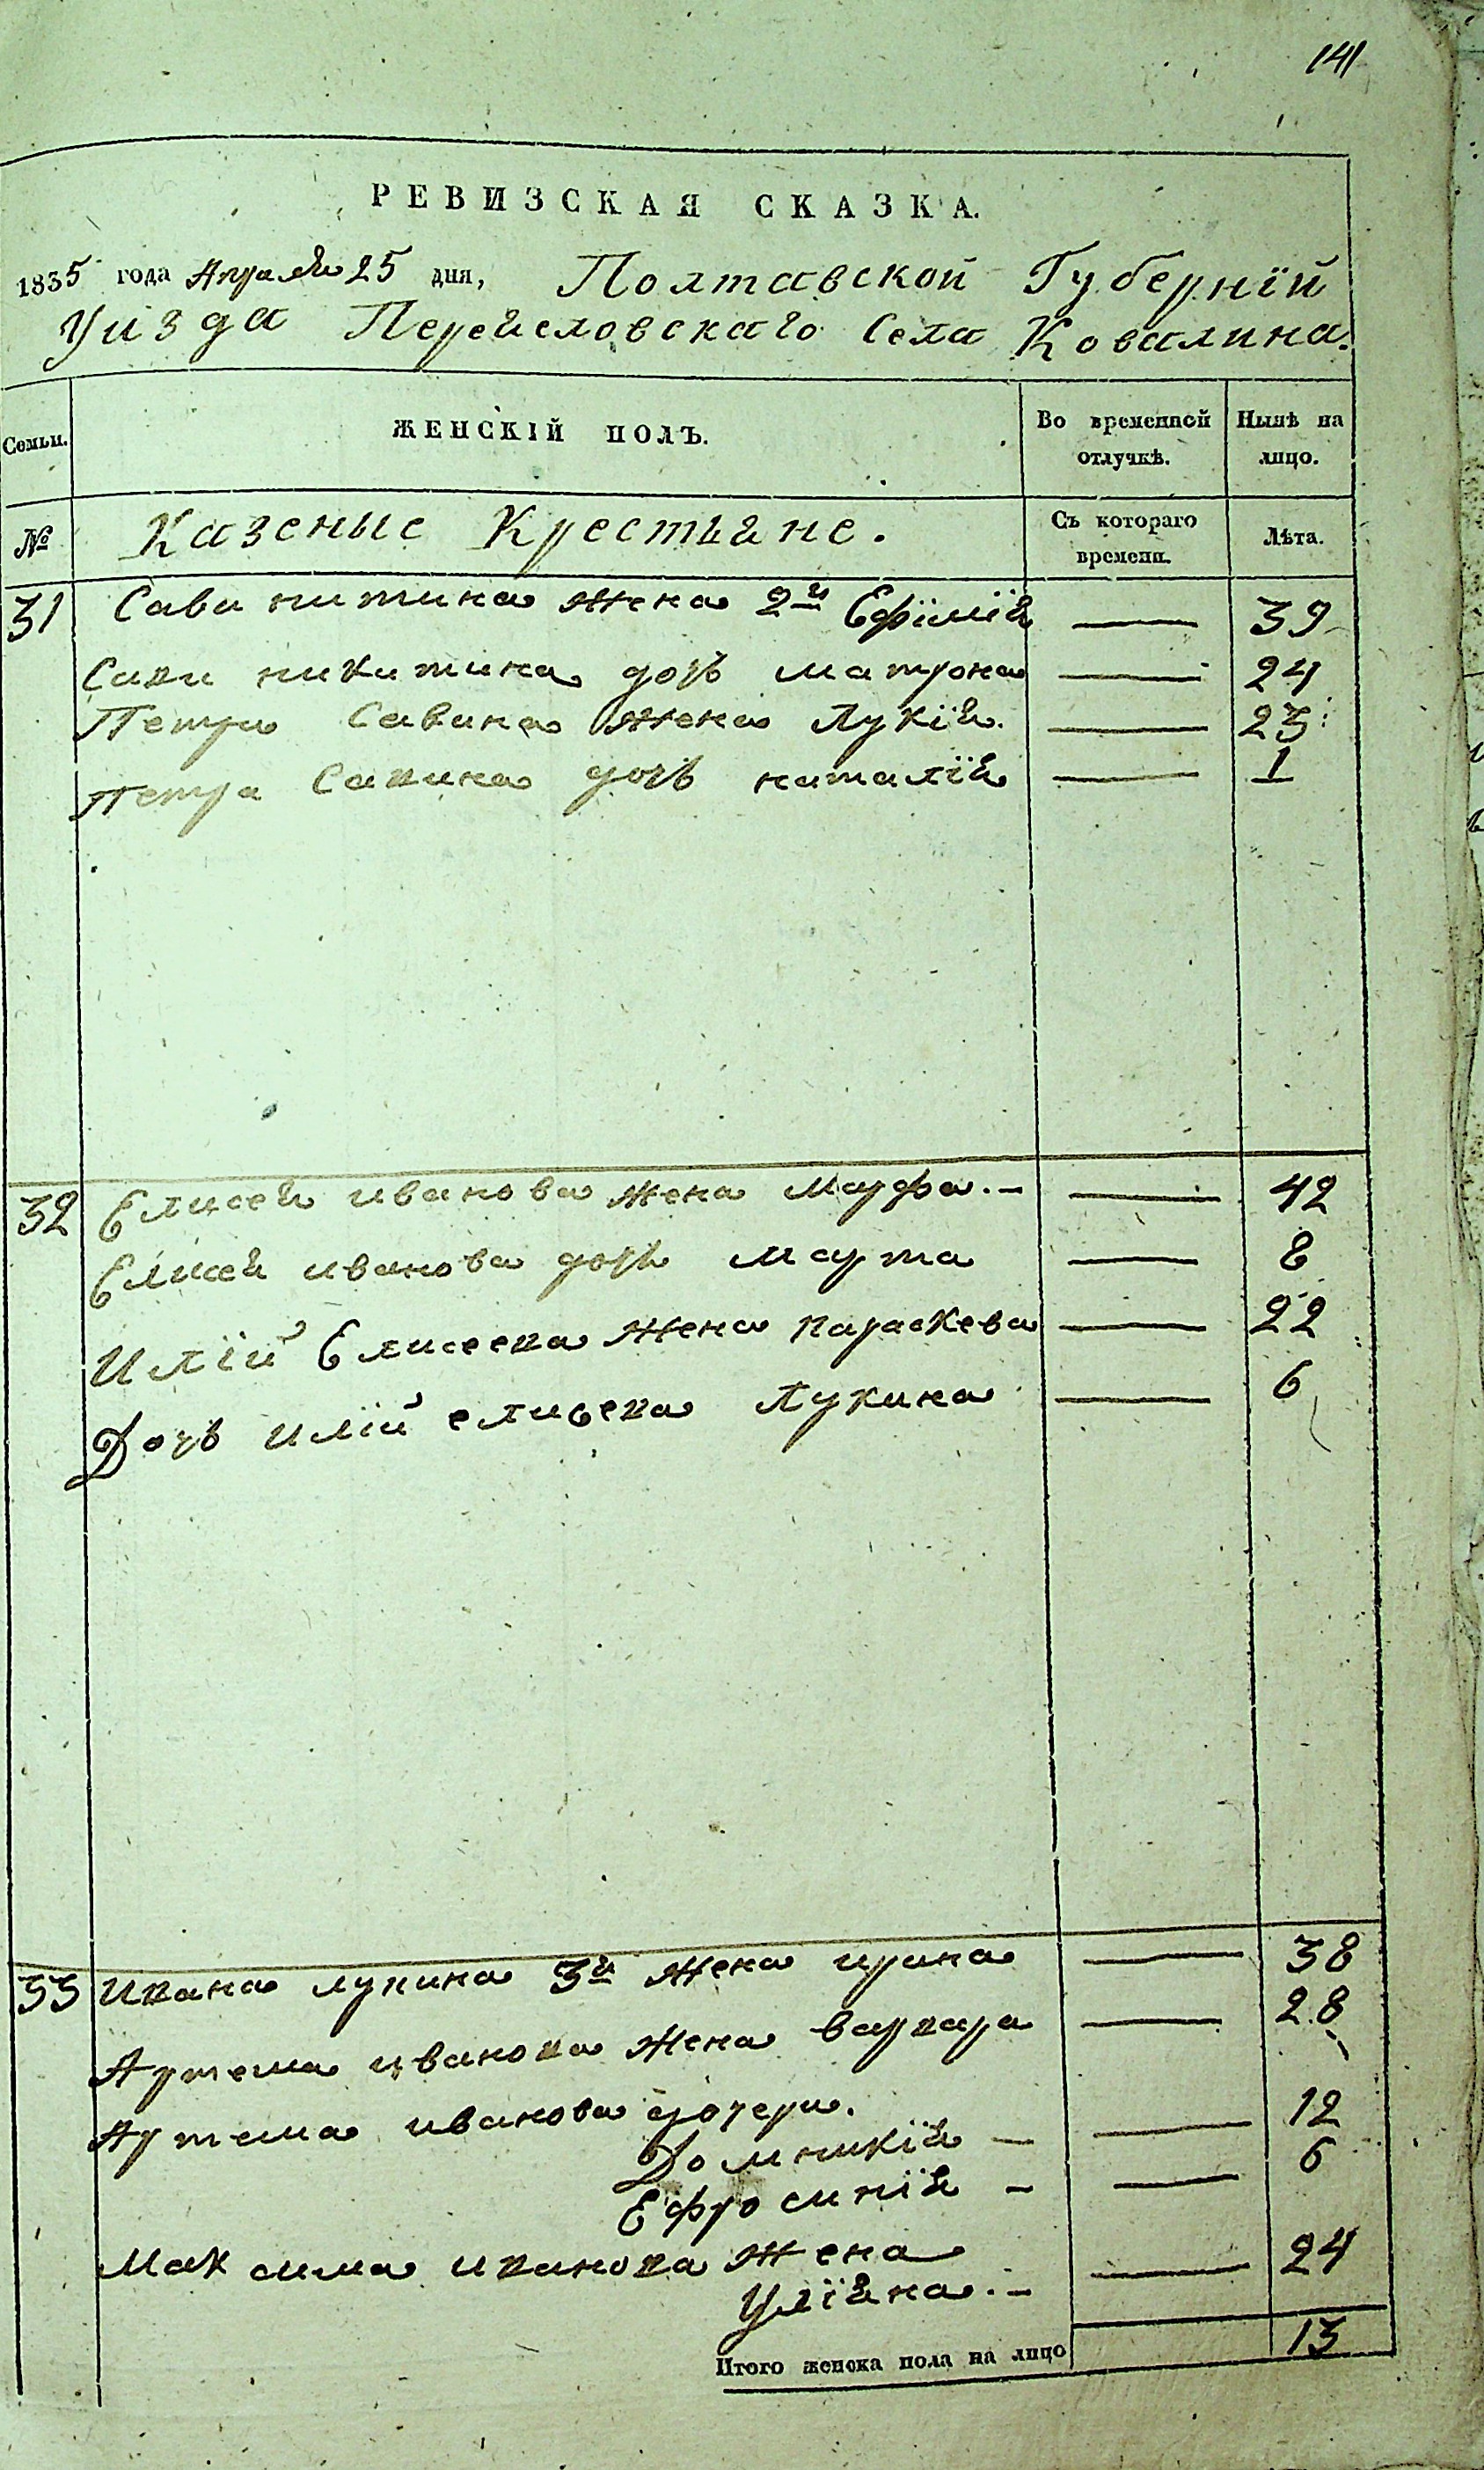 141
РЕВИЗСКАЯ СКАЗКА.
1835 года Апреля 25 дня, Полтавской Губернїй
Уизда Переясловскаго Села Ковалина.
Семьи. ЖЕНСКІЙ ПОЛЪ. Во временной отлучкѣ. Нынѣ на лицо.
№ Казеные Крестьяне. Съ котораго времени. Лѣта.
31 Сави китина жена 2я Ефїмїя — 39
Сави никитина дочь матрона — 24
Петра Савина жена Лукїя. — 23
Петра Савина дочь наталїя — 1
32 Елисея иванова жена Марфа. — — 42
Елисея иванова дочь марта — 8
Илїй Елисеева жена параскева — 22
Дочь илїй елисева Лукина — 6
33 Ивана лукина 3я жена ирина — 38
Артема иванова жена варвара — 28
Артема иванова дочери.
Домникїя — — 12
Ефросинїя — — 6
Максима иванова жена
Улїяна. — — 24
Итого женска пола на лицо 13